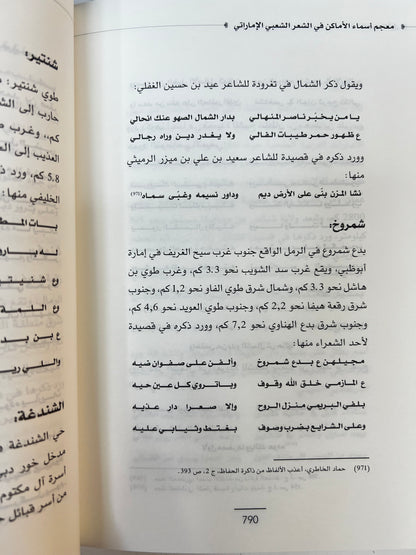 معجم أسماء الأماكن في الشعر الشعبي الإماراتي
ويقول ذكر الشمال في تغرودة للشاعر عيد بن حسين الغفلي:
يا من يخبّر ناصر المنهالي بدار الشمال الصهو عنك انحالي
ع ظهور حمر طيبات الفالي ولا يغدر دين وراه رجالي
وورد ذكره في قصيدة للشاعر سعيد بن علي بن ميزر الرميثي
منها:
نشا المزن بنى على الأرض ديم وداور نسيمه وغبّى سماه(971)
شمروخ:
بدع شمروخ في الرمل الواقع جنوب غرب سيح الغريف في إمارة
أبوظبي، ويقع غرب سد الشويب نحو 3.3 كم، وغرب طوي بن
هاشل نحو 3.3 كم، وشمال شرق طوي الفاو نحو 1,2 كم، وجنوب
شرق رقعة هيفا نحو 2,2 كم، وجنوب طوي العويد نحو 4,6 كم،
وجنوب شرق بدع الهناوي نحو 7,2 كم، وورد ذكره في قصيدة
لأحد الشعراء منها:
مجيلهن ع بدع شمروخ وألفن على صفوان ضيه
ع المازمي خلق الله وقوف ويا تروي كل عين حيه
بلفي البريمي منزل الروح وإلا صعرا دار عذيه
وعلى الشرايع بضرب وصوف بغتط وثيابي عليه
(971) حماد الخاطري، أعذب الألفاظ من ذاكرة الحفاظ، ج 2، ص 393.
790
شنتير:
طوي شنتير:
حارب إلى الش
كم، وغرب ط
العذيب إلى ال
5.8 كم، ورد
الخليفي منها:
بات المط
له بار
وع شنيت
وع اللمة
ع بن بد
واللي ري
الشندغة:
حي الشندغة
مدخل خور دب
أسرة آل مكتوم
من أسر قبائل